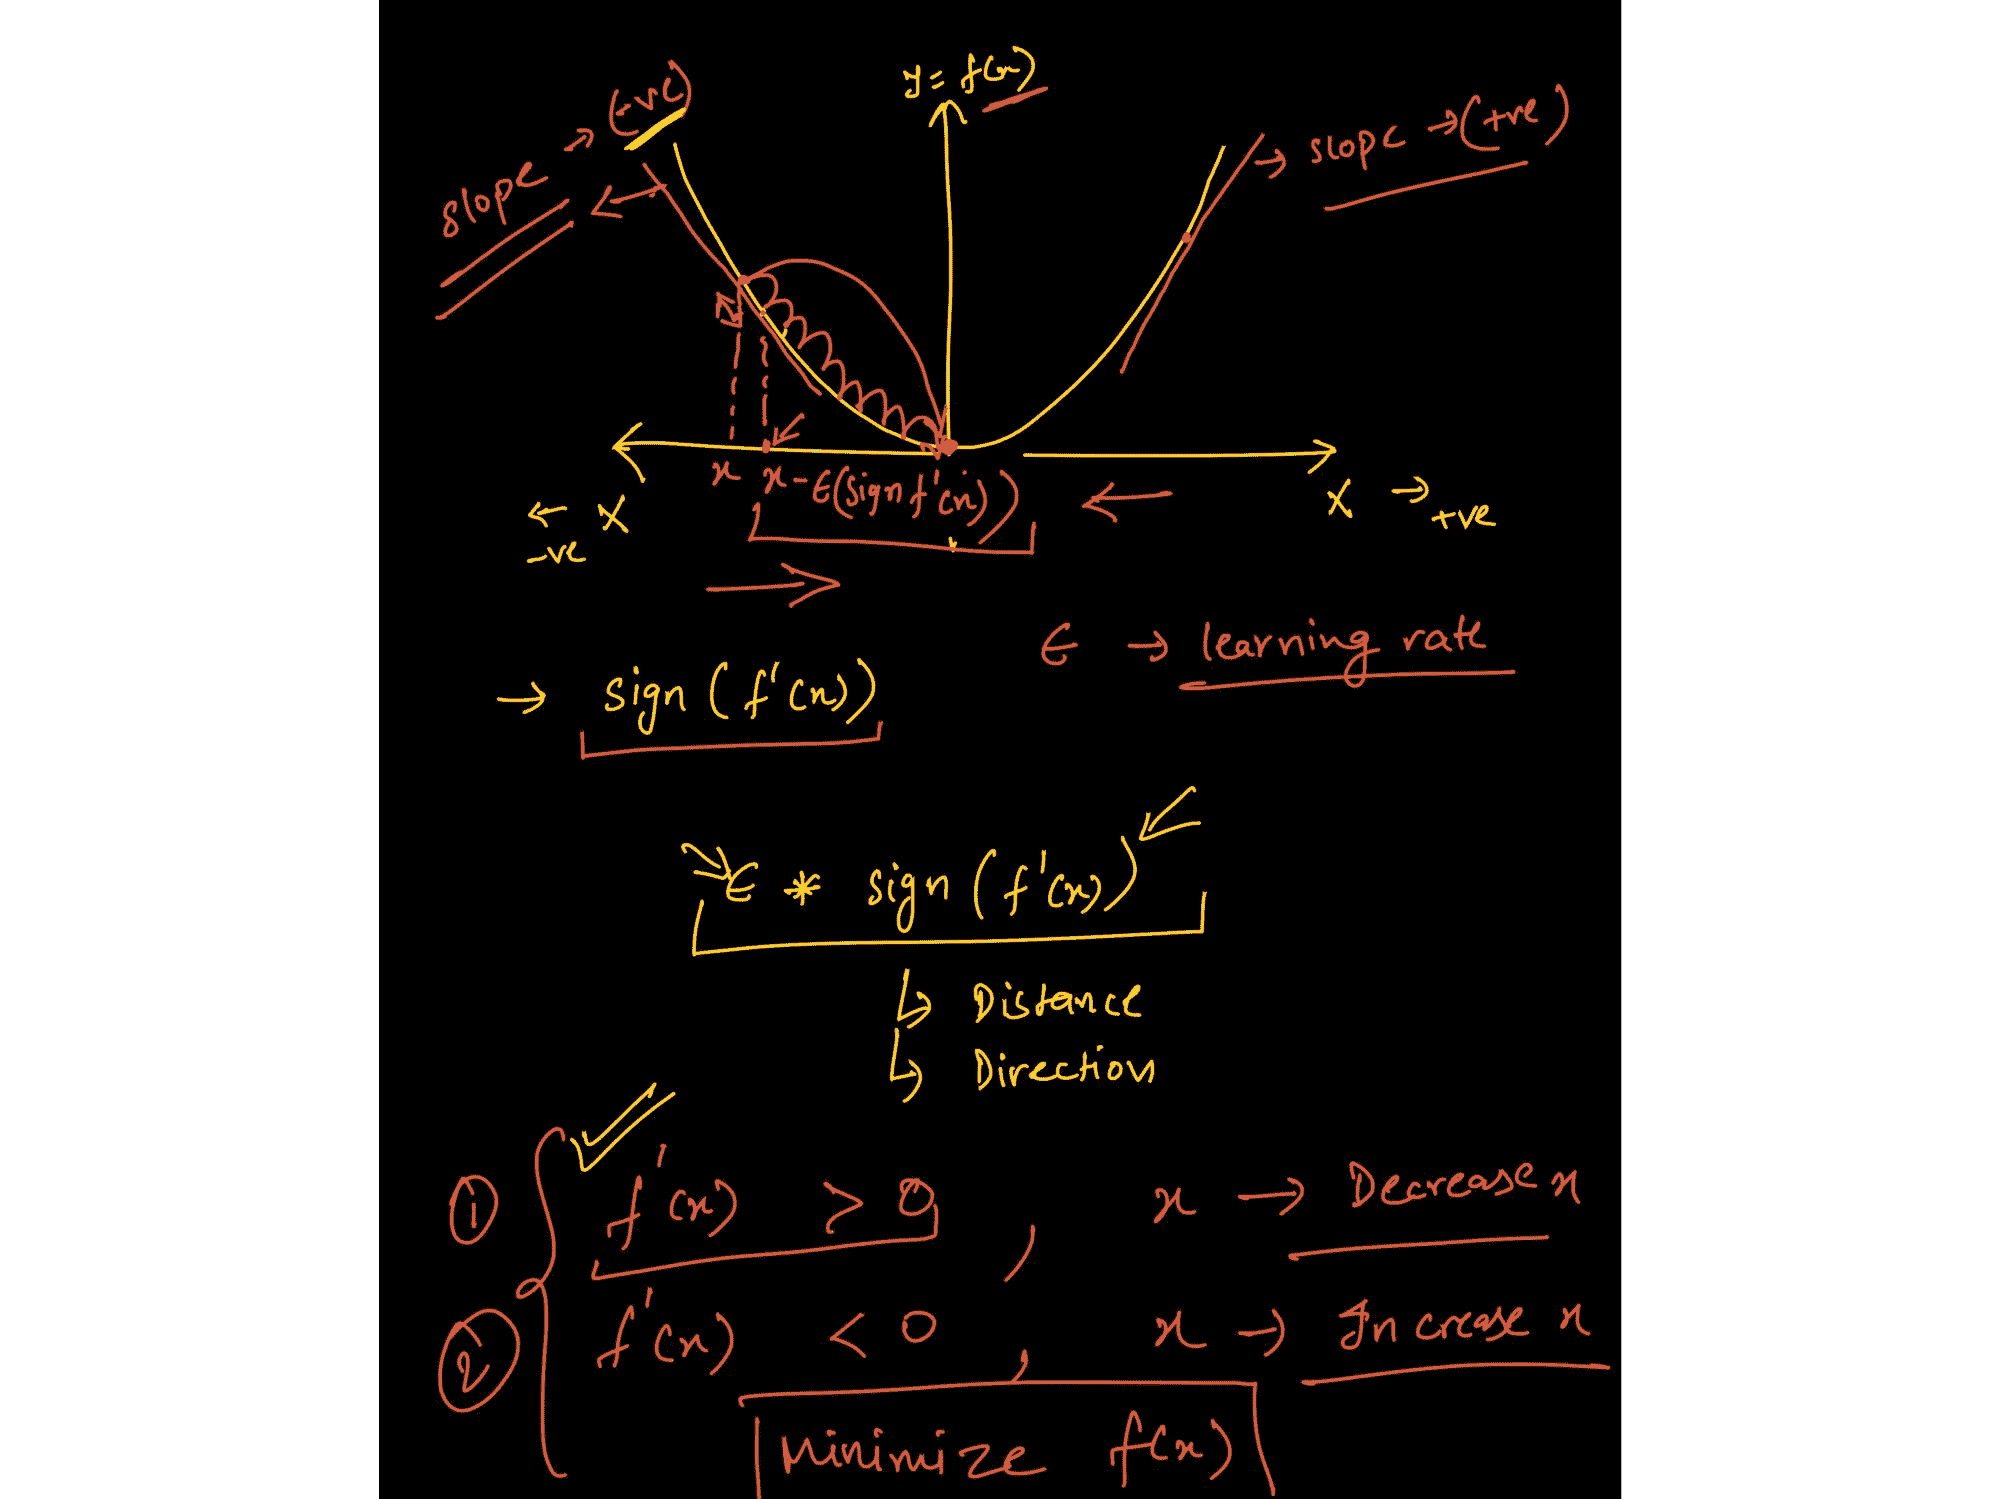 y = f(x)
slope → (-ve)
→ slope → (+ve)
x x - ϵ(sign f'(x))
← X
-ve
X →
+ve
ϵ → learning rate
→ sign (f'(x))
ϵ * sign (f'(x))
↳ Distance
↳ Direction
① f'(x) > 0 , x → Decrease x
② f'(x) < 0 , x → Increase x
Minimize f(x)